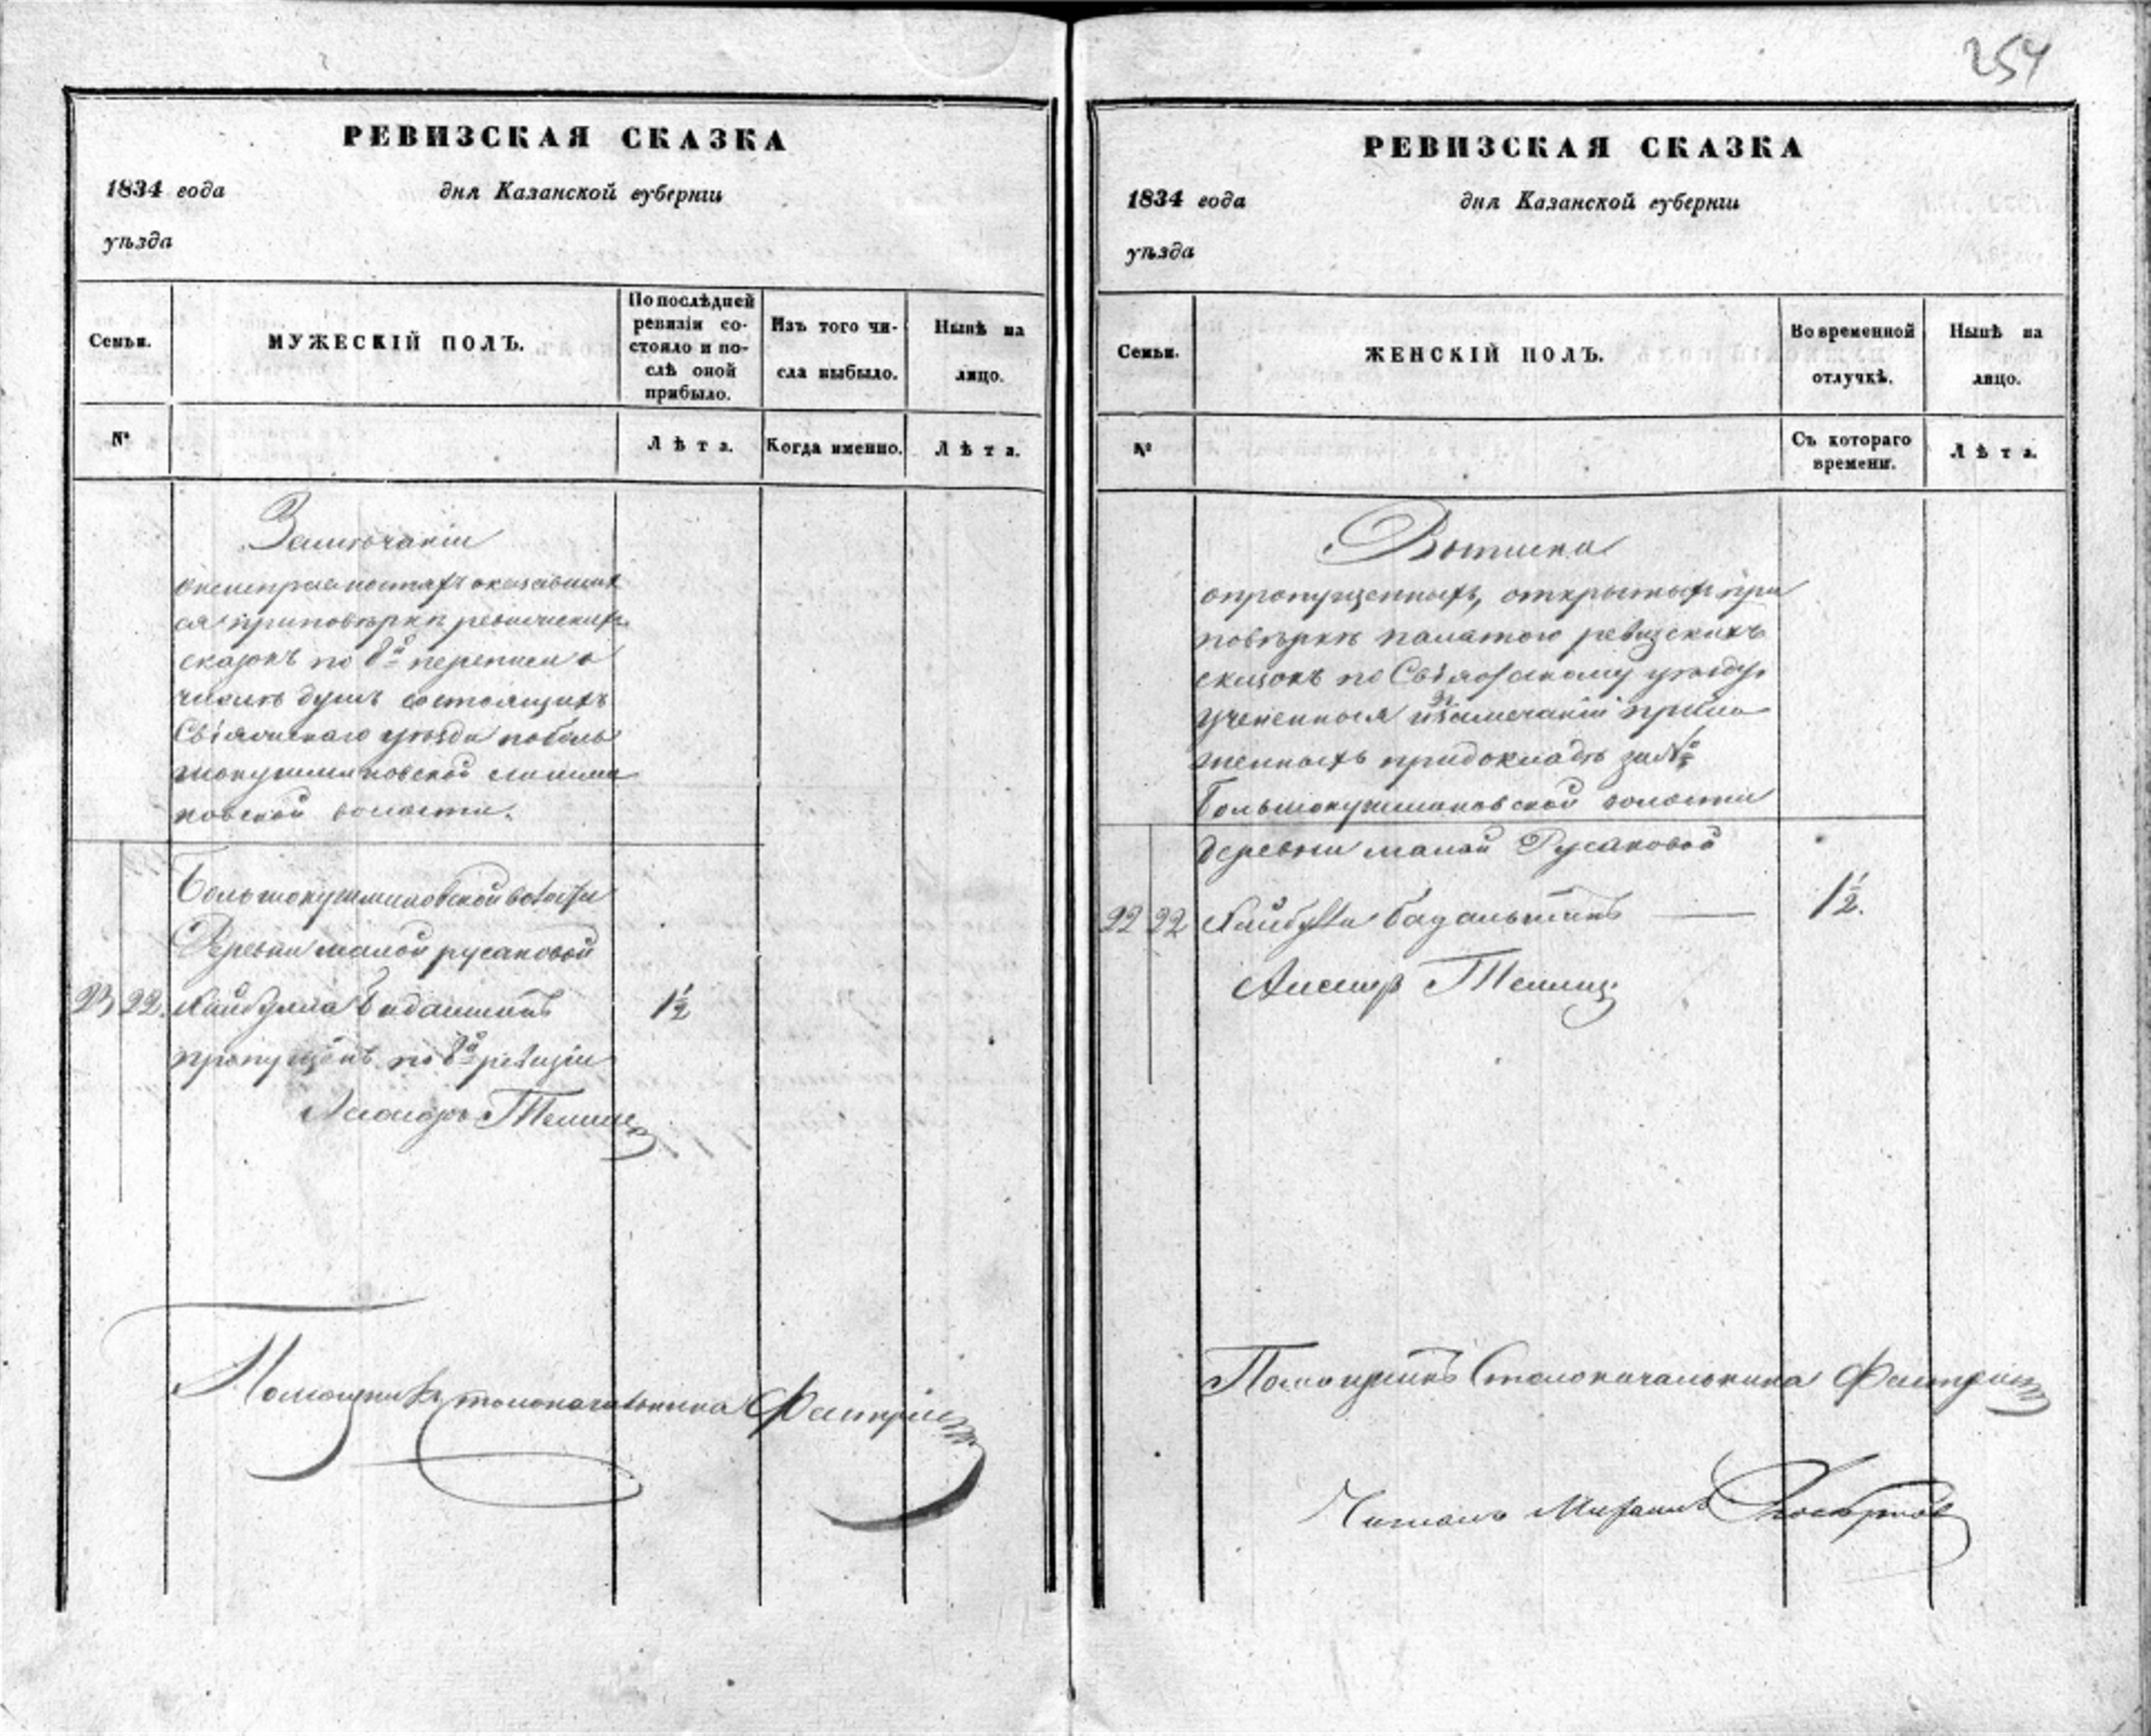 254
РЕВИЗСКАЯ СКАЗКА
1834 года дня Казанской губернiи
уѣзда
Семьи.
МУЖЕСКIЙ ПОЛЪ.
По послѣдней
ревизiи со-
стояло и по-
слѣ оной
прибыло.
Изъ того чи-
сла выбыло.
Нынѣ на
лицо.
№
Лѣта.
Когда именно.
Лѣта.
Замѣчанiи
ся приповѣркѣ ревизскихъ
сказокъ по 8й переписи о
числѣ душъ состоящихъ
Свiяжскаго уѣзда поболь
шокушмаковской
новской волости.
Большокушмаковской волости
Деревни малой русаковой
23 22. Хайбулла Бадамшинъ 1½
пропущенъ по 8й ревизiи
Помощникъ столоначальника
РЕВИЗСКАЯ СКАЗКА
1834 года дня Казанской губернiи
уѣзда
Семьи.
ЖЕНСКIЙ ПОЛЪ.
Во временной
отлучкѣ.
Нынѣ на
лицо.
№
Съ котораго
времени.
Лѣта.
Выписка
опропущенныхъ, открытыхъ при
повѣркѣ палатою ревизскихъ
сказокъ по Свiяжскому уѣзду
учененная изъ замечанiй прило
женныхъ придокладѣ за №
Большокушмаковской волости
деревни малой Русаковой
22 22 Хайбулла 1½.
Помощникъ Столоначальника
Читалъ